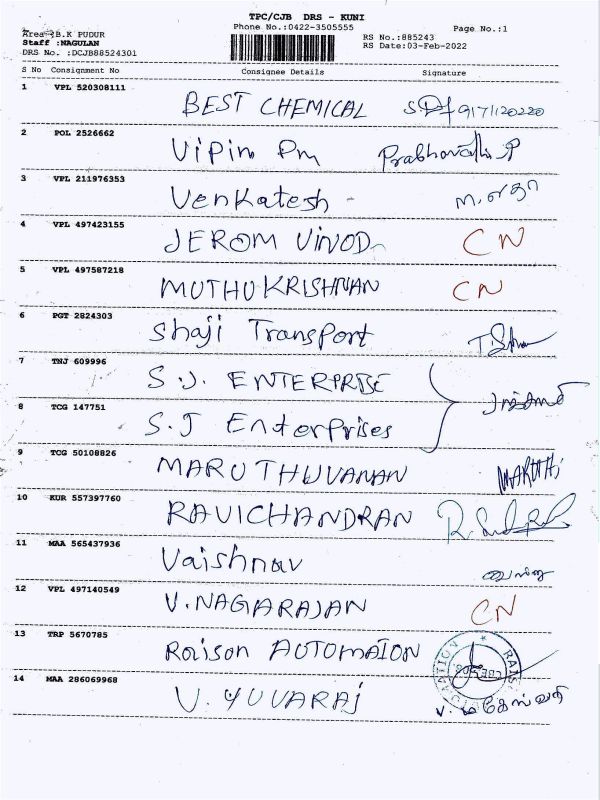 TPC/CJB DRS - KUNI
Phone No.:0422-3505555
Page No.:1
Area :B.K PUDUR
RS No.:885243
Staff :NAGULAN
RS Date:03-Feb-2022
DRS No. :DCJB88524301
S No Consignment No Consignee Details Signature
1 VPL 520308111
BEST CHEMICAL
2 POL 2526662
Vipin Pm Prabhavathi P
3 VPL 211976353
Venkatesh -
4 VPL 497423155
JEROM VINOD CN
5 VPL 497587218
MUTHUKRISHNAN CN
6 PGT 2824303
Shaji Transport
7 TNJ 609996
S.J. ENTERPRISE
8 TCG 147751
S.J Enterprises
9 TCG 50108826
MARUTHUVANAN MARUTHI
10 KUR 557397760
RAVICHANDRAN
11 MAA 565437936
Vaishnav
12 VPL 497140549
V.NAGARAJAN CN
13 TRP 5670785
Raison AUTOMAION
14 MAA 286069968
V. YUVARAJ